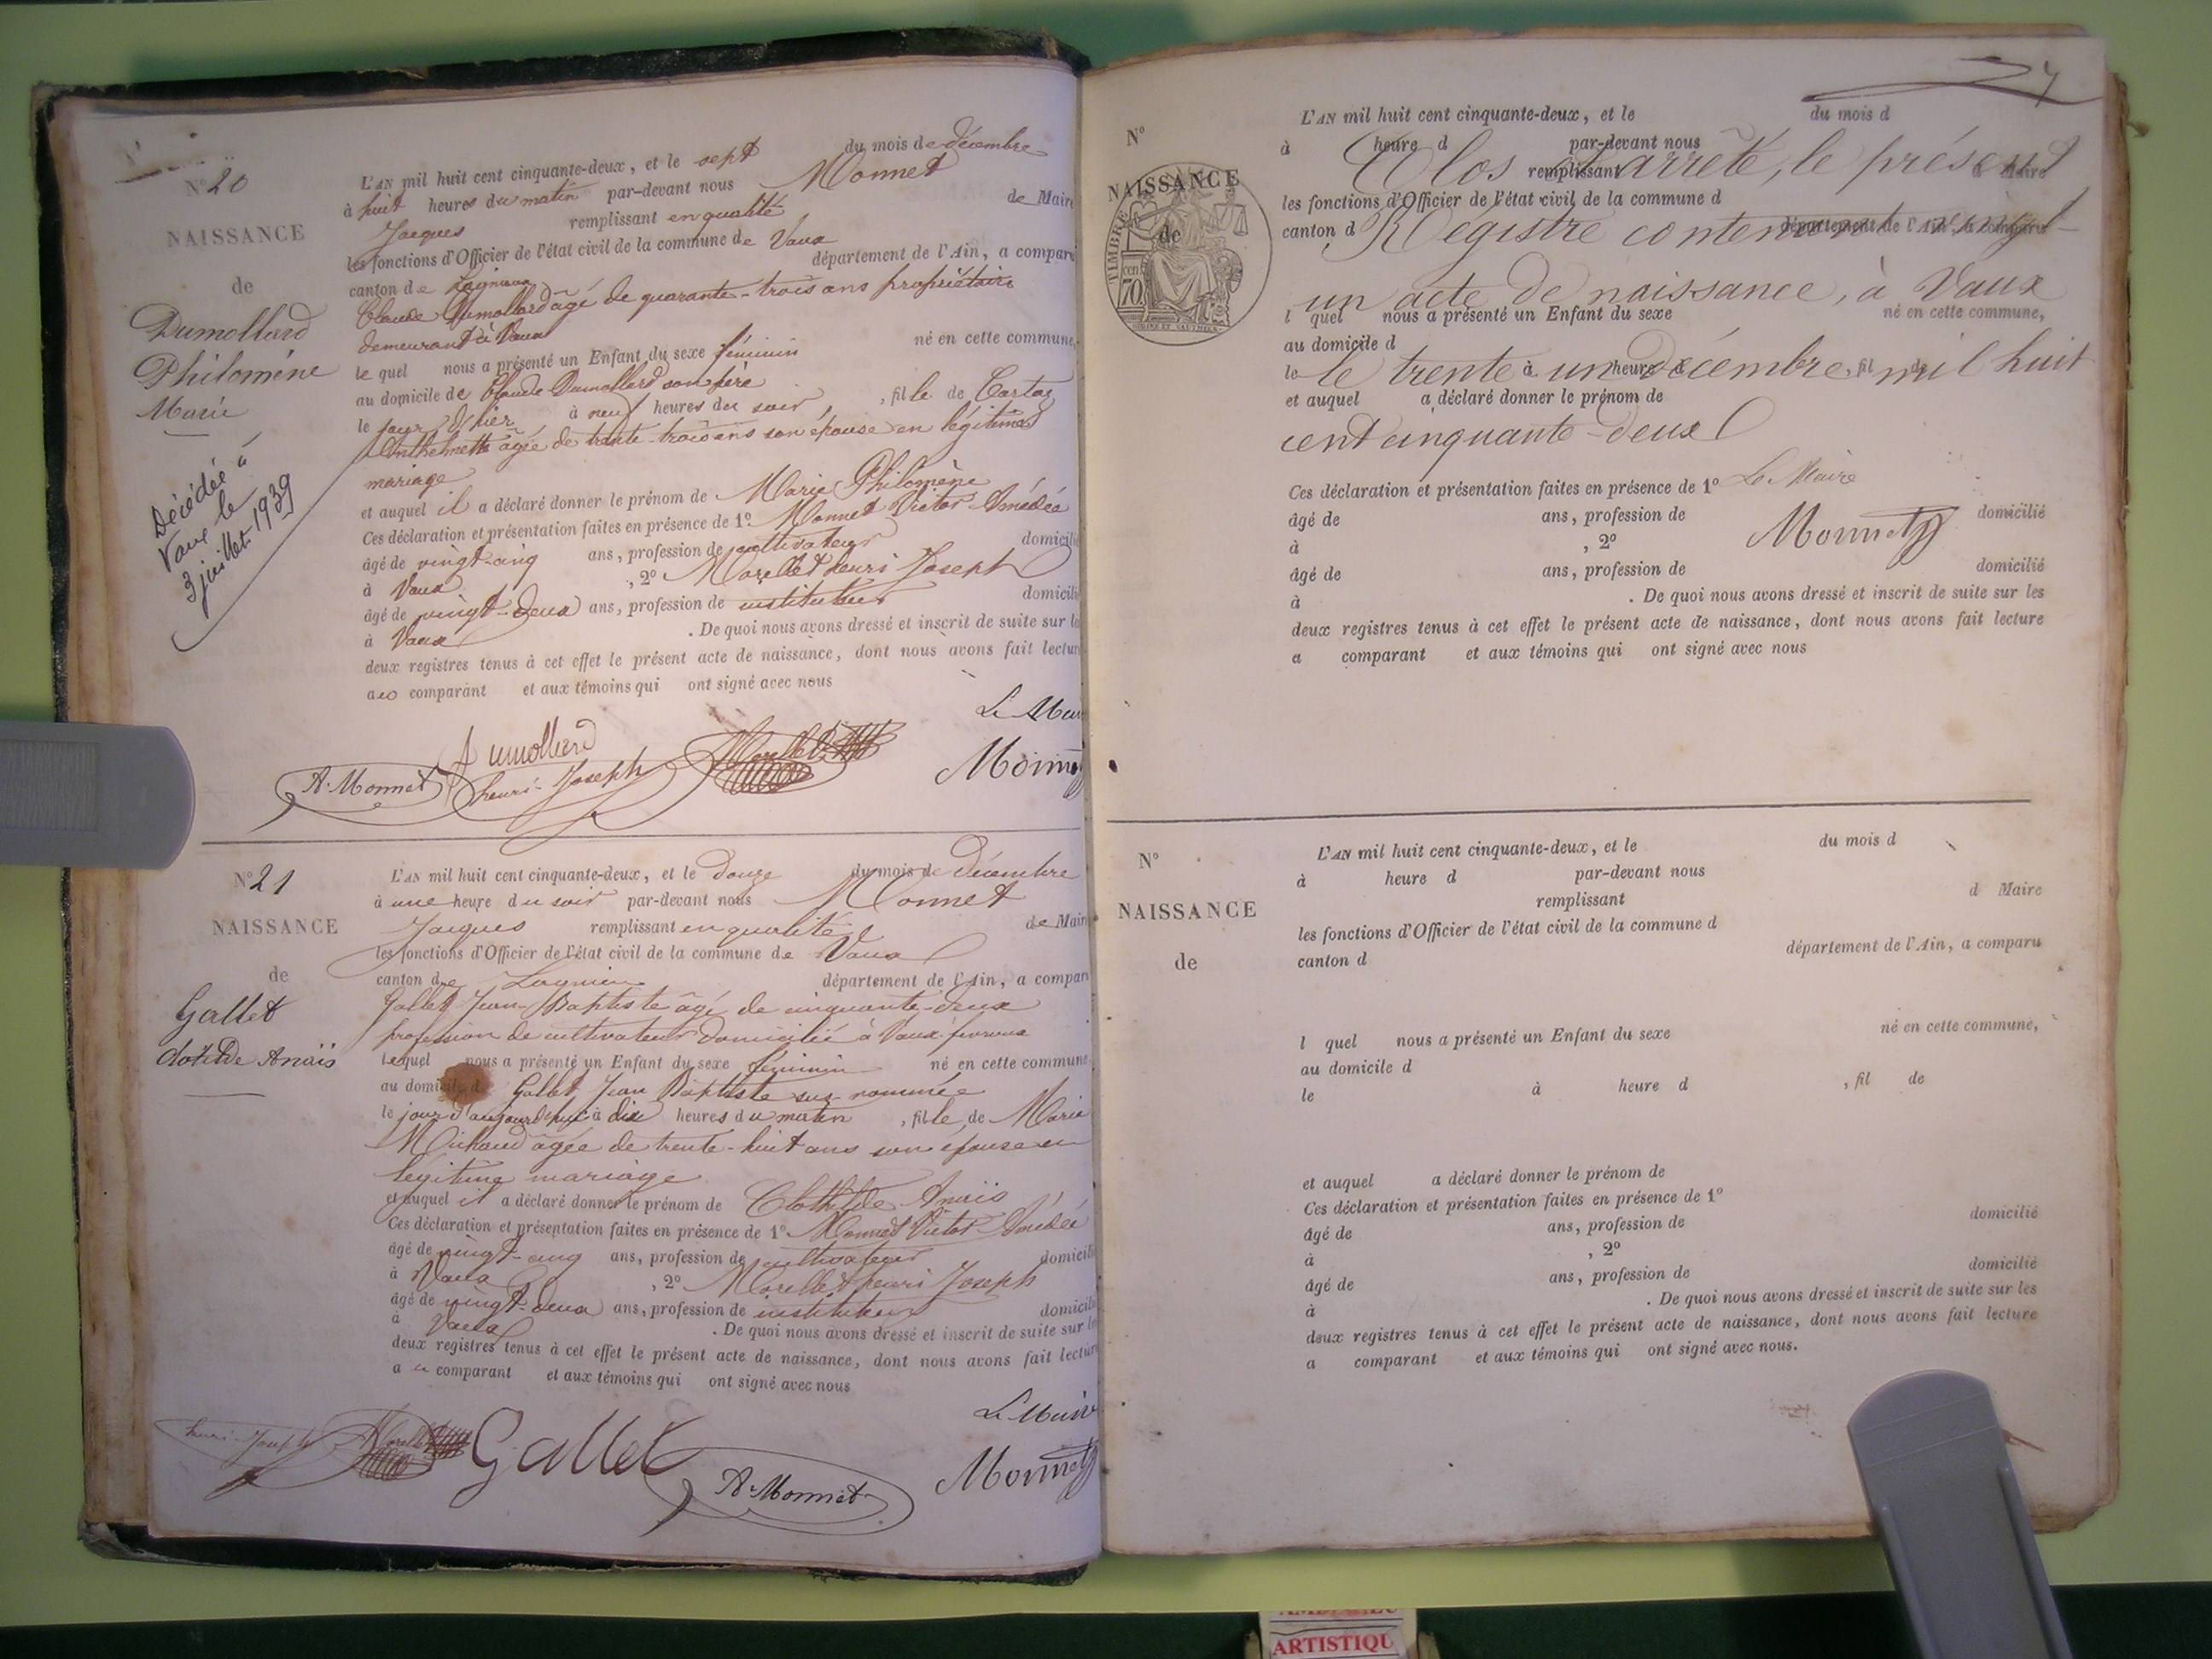 N° 20
NAISSANCE
de
Dumollard
Philomène
Marie
Décédée à
Vaux le
3 juillet 1939
L'AN mil huit cent cinquante-deux, et le sept du mois de décembre
à huit heures du matin par-devant nous Monnet
Jacques remplissant en qualité de Maire
les fonctions d'Officier de l'état civil de la commune de Vaux
canton de Lagnieu département de l'Ain, a compar
Claude Dumollard âgé de quarante-trois ans propriétaire
demeurant à Vaux
le quel nous a présenté un Enfant du sexe féminin né en cette commune,
au domicile de Claude Dumollard son père
le jour d'hier à neuf heures du soir, fille de Cartaz
Anthelmette âgée de trente-trois ans son épouse en légitime
mariage
et auquel il a déclaré donner le prénom de Marie Philomène
Ces déclaration et présentation faites en présence de 1° Monnet Victor Amédée
âgé de vingt-cinq ans, profession de cultivateur domicilié
à Vaux, 2° Morellet henri Joseph
âgé de vingt-deux ans, profession de instituteur domicili
à Vaux. De quoi nous avons dressé et inscrit de suite sur le
deux registres tenus à cet effet le présent acte de naissance, dont nous avons fait lectur
au comparant et aux témoins qui ont signé avec nous
Le Mair
Dumollard
A. Monnet henri-Joseph Morellet Monnet
N° 21
NAISSANCE
de
Gallet
Clotilde Anaïs
L'AN mil huit cent cinquante-deux, et le Douze du mois de Décembre
à une heure du soir par-devant nous Monnet
Jacques remplissant en qualité de Maire
les fonctions d'Officier de l'état civil de la commune de Vaux
canton de Lagnieu département de l'Ain, a compar
Gallet Jean-Baptiste âgé de cinquante-deux
profession de cultivateur domicilié à Vaux
lequel nous a présenté un Enfant du sexe féminin né en cette commune
au domicile de Gallet Jean Baptiste sus-nommée
le jour d'aujourd'hui à dix heures du matin, fille de Marie
Michaud âgée de trente-huit ans son épouse en
légitime mariage
et auquel il a déclaré donner le prénom de Clothilde Anaïs
Ces déclaration et présentation faites en présence de 1° Monnet Victor Amédée
âgé de vingt-cinq ans, profession de cultivateur domicili
à Vaux, 2° Morellet henri Joseph
âgé de vingt-deux ans, profession de instituteur domicili
à Vaux. De quoi nous avons dressé et inscrit de suite sur le
deux registres tenus à cet effet le présent acte de naissance, dont nous avons fait lectur
au comparant et aux témoins qui ont signé avec nous
Le Maire
henri-Joseph Morellet Gallet A. Monnet Monnet
N°
NAISSANCE
de
TIMBRE
70
L'AN mil huit cent cinquante-deux, et le du mois d
à heure d par-devant nous
Clos et arrêté, le présent
remplissant d Maire
les fonctions d'Officier de l'état civil de la commune d
canton d département de l'Ain, a comparu
Régistre contenant vingt-
un acte de naissance, à Vaux
l quel nous a présenté un Enfant du sexe né en cette commune,
au domicile d
le à heure d, fil de
le trente un décembre mil huit
et auquel a déclaré donner le prénom de
cent cinquante-deux
Ces déclaration et présentation faites en présence de 1° Le Maire
âgé de ans, profession de domicilié
Monnet
à, 2°
âgé de ans, profession de domicilié
à. De quoi nous avons dressé et inscrit de suite sur les
deux registres tenus à cet effet le présent acte de naissance, dont nous avons fait lecture
a comparant et aux témoins qui ont signé avec nous
N°
NAISSANCE
de
L'AN mil huit cent cinquante-deux, et le du mois d
à heure d par-devant nous
remplissant d Maire
les fonctions d'Officier de l'état civil de la commune d
canton d département de l'Ain, a comparu
l quel nous a présenté un Enfant du sexe né en cette commune,
au domicile d
le à heure d, fil de
et auquel a déclaré donner le prénom de
Ces déclaration et présentation faites en présence de 1°
âgé de ans, profession de domicilié
à, 2°
âgé de ans, profession de domicilié
à. De quoi nous avons dressé et inscrit de suite sur les
deux registres tenus à cet effet le présent acte de naissance, dont nous avons fait lecture
a comparant et aux témoins qui ont signé avec nous.
ARTISTIQU